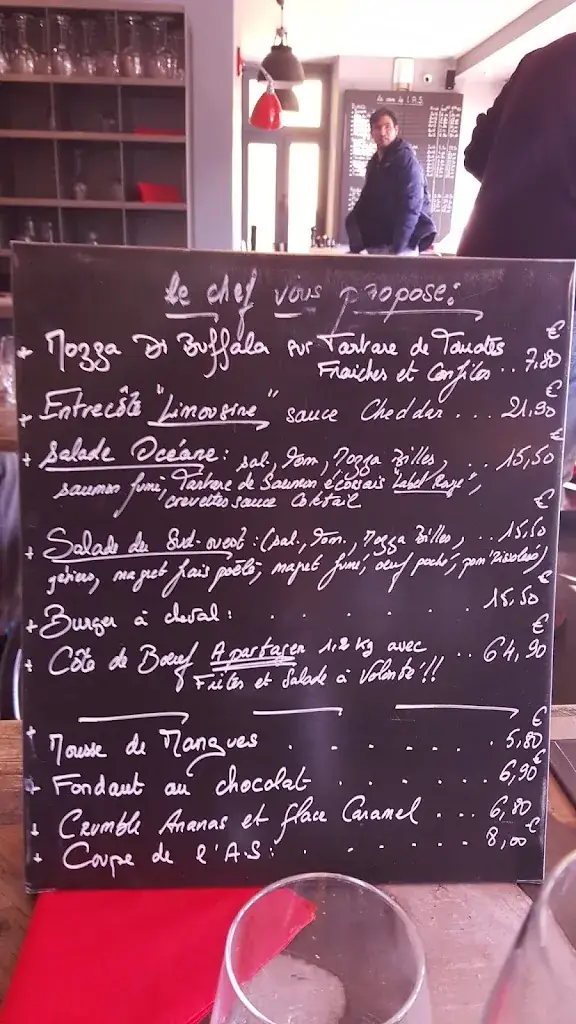 Le coin de l'A.S.
Le chef vous propose:
+ Mozza Di Buffala sur Tartare de Tomates €
Fraiches et Confites .. 7,80
+ Entrecôte "Limousine" sauce Cheddar ... 21,90 €
+ Salade Océane: sal, Tom, Mozza Billes, ... 15,50 €
saumon fumé, Tartare de Saumon écossais "Label Rouge",
crevettes sauce Coktail
+ Salade du Sud-ouest: (sal, Tom, Mozza Billes, ... 15,50 €
gésiers, magret frais poêlé, magret fumé, oeuf poché, pom rissolées)
+ Burger à cheval: . . . . . . 15,50 €
+ Côte de Boeuf A partager 1,2 kg avec .. 64,90 €
Frites et Salade à Volonté!!
+ Mousse de Mangues . . . . . 5,80 €
+ Fondant au chocolat . . . . . 6,90 €
+ Crumble Ananas et glace Caramel ... 6,80
+ Coupe de l'A.S: . . . . . 8,00 €